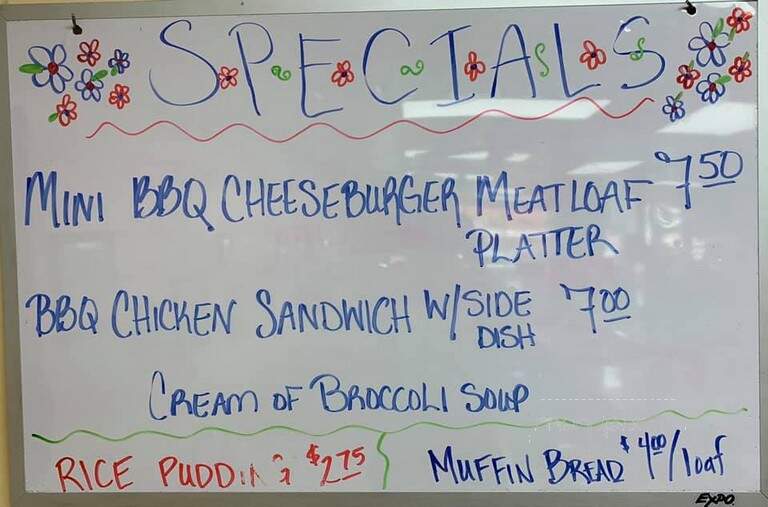 SPECIALS
MINI BBQ CHEESEBURGER MEATLOAF 7.50
PLATTER
BBQ CHICKEN SANDWICH W/SIDE 7.00
DISH
CREAM OF BROCCOLI SOUP
RICE PUDDING $2.75
MUFFIN BREAD $4.00/loaf
EXPO